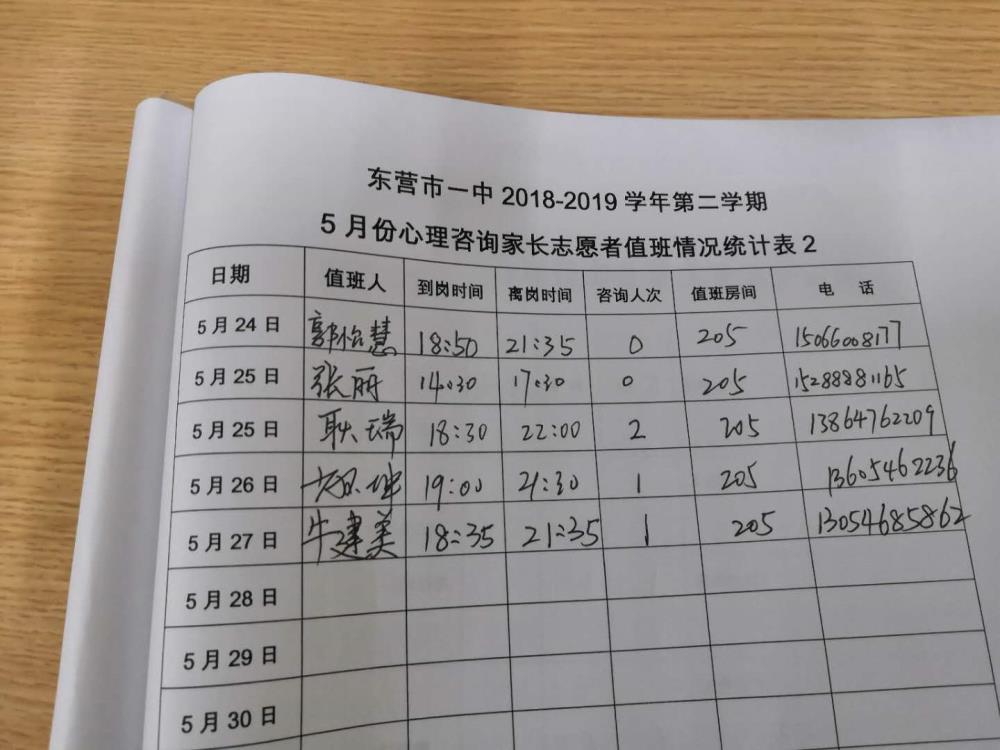 东营市一中 2018-2019 学年第二学期
5 月份心理咨询家长志愿者值班情况统计表 2
日期 值班人 到岗时间 离岗时间 咨询人次 值班房间 电 话
5 月 24 日 郭怡慧 18:50 21:35 0 205 15066008177
5 月 25 日 张丽 14:30 17:30 0 205 15288881165
5 月 25 日 耿瑞 18:30 22:00 2 205 13864762209
5 月 26 日 19:00 21:30 1 205 13605462236
5 月 27 日 牛建美 18:35 21:35 1 205 13054685862
5 月 28 日
5 月 29 日
5 月 30 日